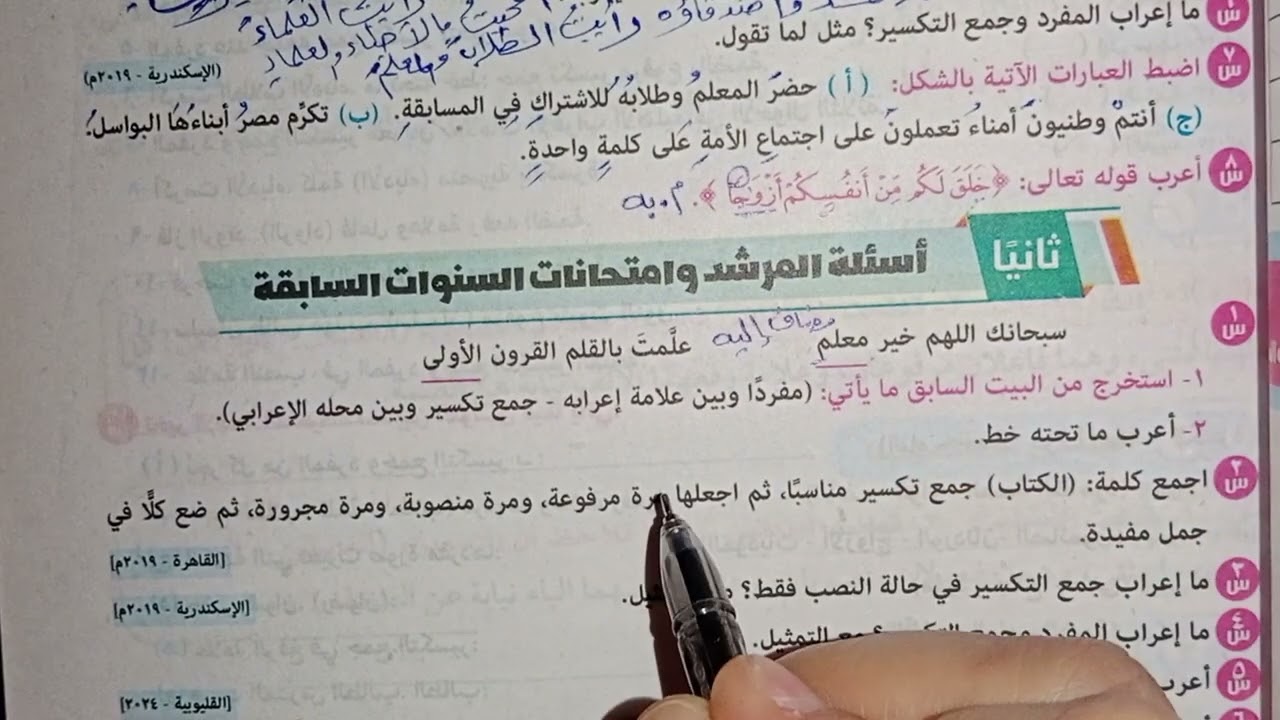 رأيت العلماء
رأيت الطلاب
ما إعراب المفرد وجمع التكسير؟ مثل لما تقول.
(الإسكندرية - ٢٠١٩م)
س٧ اضبط العبارات الآتية بالشكل: (أ) حضرَ المعلمُ وطلابُهُ للاشتراكِ فِي المسابقةِ. (ب) تكرِّم مصرُ أبناءَهَا البواسلَ.
(ج) أنتمْ وطنيونَ أمناءُ تعملونَ على اجتماعِ الأمةِ عَلى كلمةٍ واحدةٍ.
س٨ أعرب قوله تعالى: ﴿خَلَقَ لَكُم مِّنْ أَنفُسِكُمْ أَزْوَٰجًا﴾. م.به
ثانيًا
أسئلة المرشد وامتحانات السنوات السابقة
س١ سبحانك اللهم خير معلمٍ مضاف إليه علَّمتَ بالقلم القرون الأولى
١- استخرج من البيت السابق ما يأتي: (مفردًا وبين علامة إعرابه - جمع تكسير وبين محله الإعرابي).
٢- أعرب ما تحته خط.
س٢ اجمع كلمة: (الكتاب) جمع تكسير مناسبًا، ثم اجعلها مرة مرفوعة، ومرة منصوبة، ومرة مجرورة، ثم ضع كلًّا في
جمل مفيدة.
[القاهرة - ٢٠١٩م]
س٣ ما إعراب جمع التكسير في حالة النصب فقط؟
[الإسكندرية - ٢٠١٩م]
س٤ ما إعراب المفرد وجمع التكسير؟ مع التمثيل.
س٥ أعرب
[القليوبية - ٢٠٢٤م]